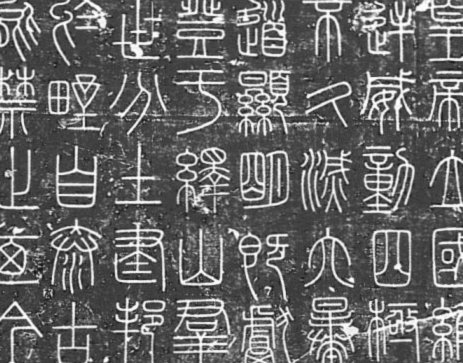 皇帝立國維
逆威動四極
不久滅六暴
道顯明既獻
登于繹山群
世分土建邦
於野自泰古
能禁止迺今